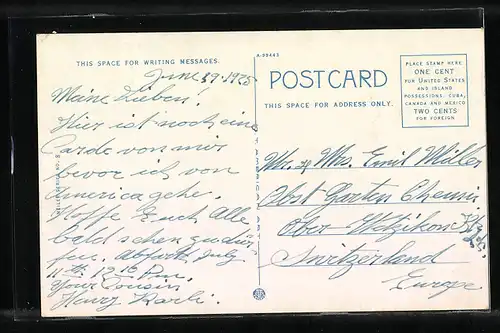 THIS SPACE FOR WRITING MESSAGES.
June 29. 1925
Meine Lieben!
Hier ist noch eine
Carde von mir
bevor ich von
America gehe.
Hoffe Euch Alle
bald sehen zu dür-
fen. Abfart July
11th 12 10 P.m.
Your Cousin
Henry Karli.
A-99443
POST CARD
THIS SPACE FOR ADDRESS ONLY.
PLACE STAMP HERE
ONE CENT
FOR UNITED STATES
AND ISLAND
POSSESSIONS, CUBA,
CANADA AND MEXICO
TWO CENTS
FOR FOREIGN
Mr. & Mrs. Emil Müller
Obst Garten Chemi.
Ober-Wetzikon Kt.
Switzerland
Europe